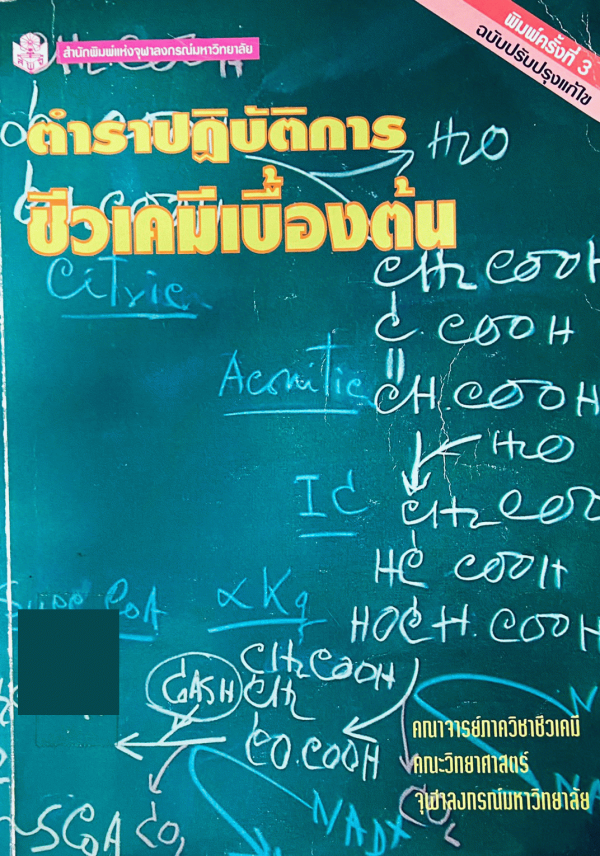 สำนักพิมพ์แห่งจุฬาลงกรณ์มหาวิทยาลัย
พิมพ์ครั้งที่ 3
ฉบับปรับปรุงแก้ไข
ตำราปฏิบัติการ
ชีวเคมีเบื้องต้น
H2O
Citric
CH2 COOH
C. COOH
Aconitic
CH. COOH
H2O
IC
CH2 COO
HC COOH
HOCH. COOH
CoA
αKg
CH2 COOH
CASH
CH2
CO. COOH
คณาจารย์ภาควิชาชีวเคมี
คณะวิทยาศาสตร์
จุฬาลงกรณ์มหาวิทยาลัย
CO2
NADX
CO2